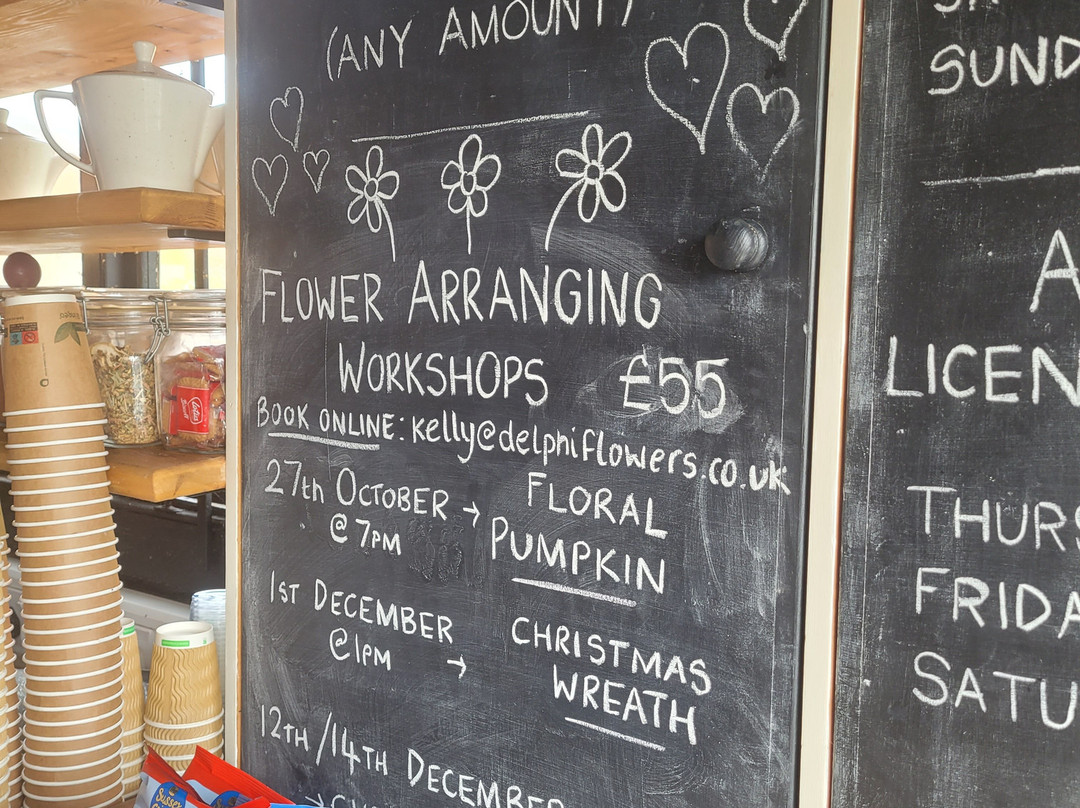 (ANY AMOUNT)
FLOWER ARRANGING
WORKSHOPS £55
BOOK ONLINE: kelly@delphiflowers.co.uk
27th OCTOBER → FLORAL
@ 7PM PUMPKIN
1ST DECEMBER
@ 1PM → CHRISTMAS
WREATH
12TH/14TH DECEMBER
SUND
A
LICEN
THURS
FRIDA
SATU
Lotus